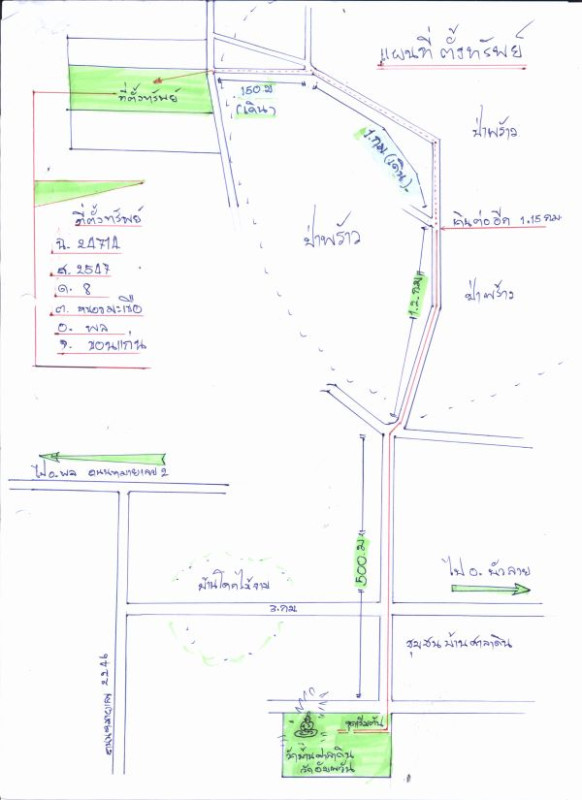 แผนที่ ตั้งทรัพย์
ที่ตั้งทรัพย์
150.ม
(เดิน)
1.กม.(เดิน).
ป่าพร้าว
ป่าพร้าว
เดินต่ออีก 1.15 กม
ป่าพร้าว
1.2.กม
ที่ตั้งทรัพย์
น. 24714
ส. 2547
ด. 8
ต. หนองมะเขือ
อ. พล
จ. ขอนแก่น
ไป อ.พล ถนนหมายเลข 2
500.ม
ไป อ. บัวลาย
บ้านโคกไร่
3.กม
ชุมชนบ้านศาลาดิน
ถนนหมายเลข 2246
จุดเริ่มต้น
วัดบ้านศาลาดิน
วัดอัมพวัน